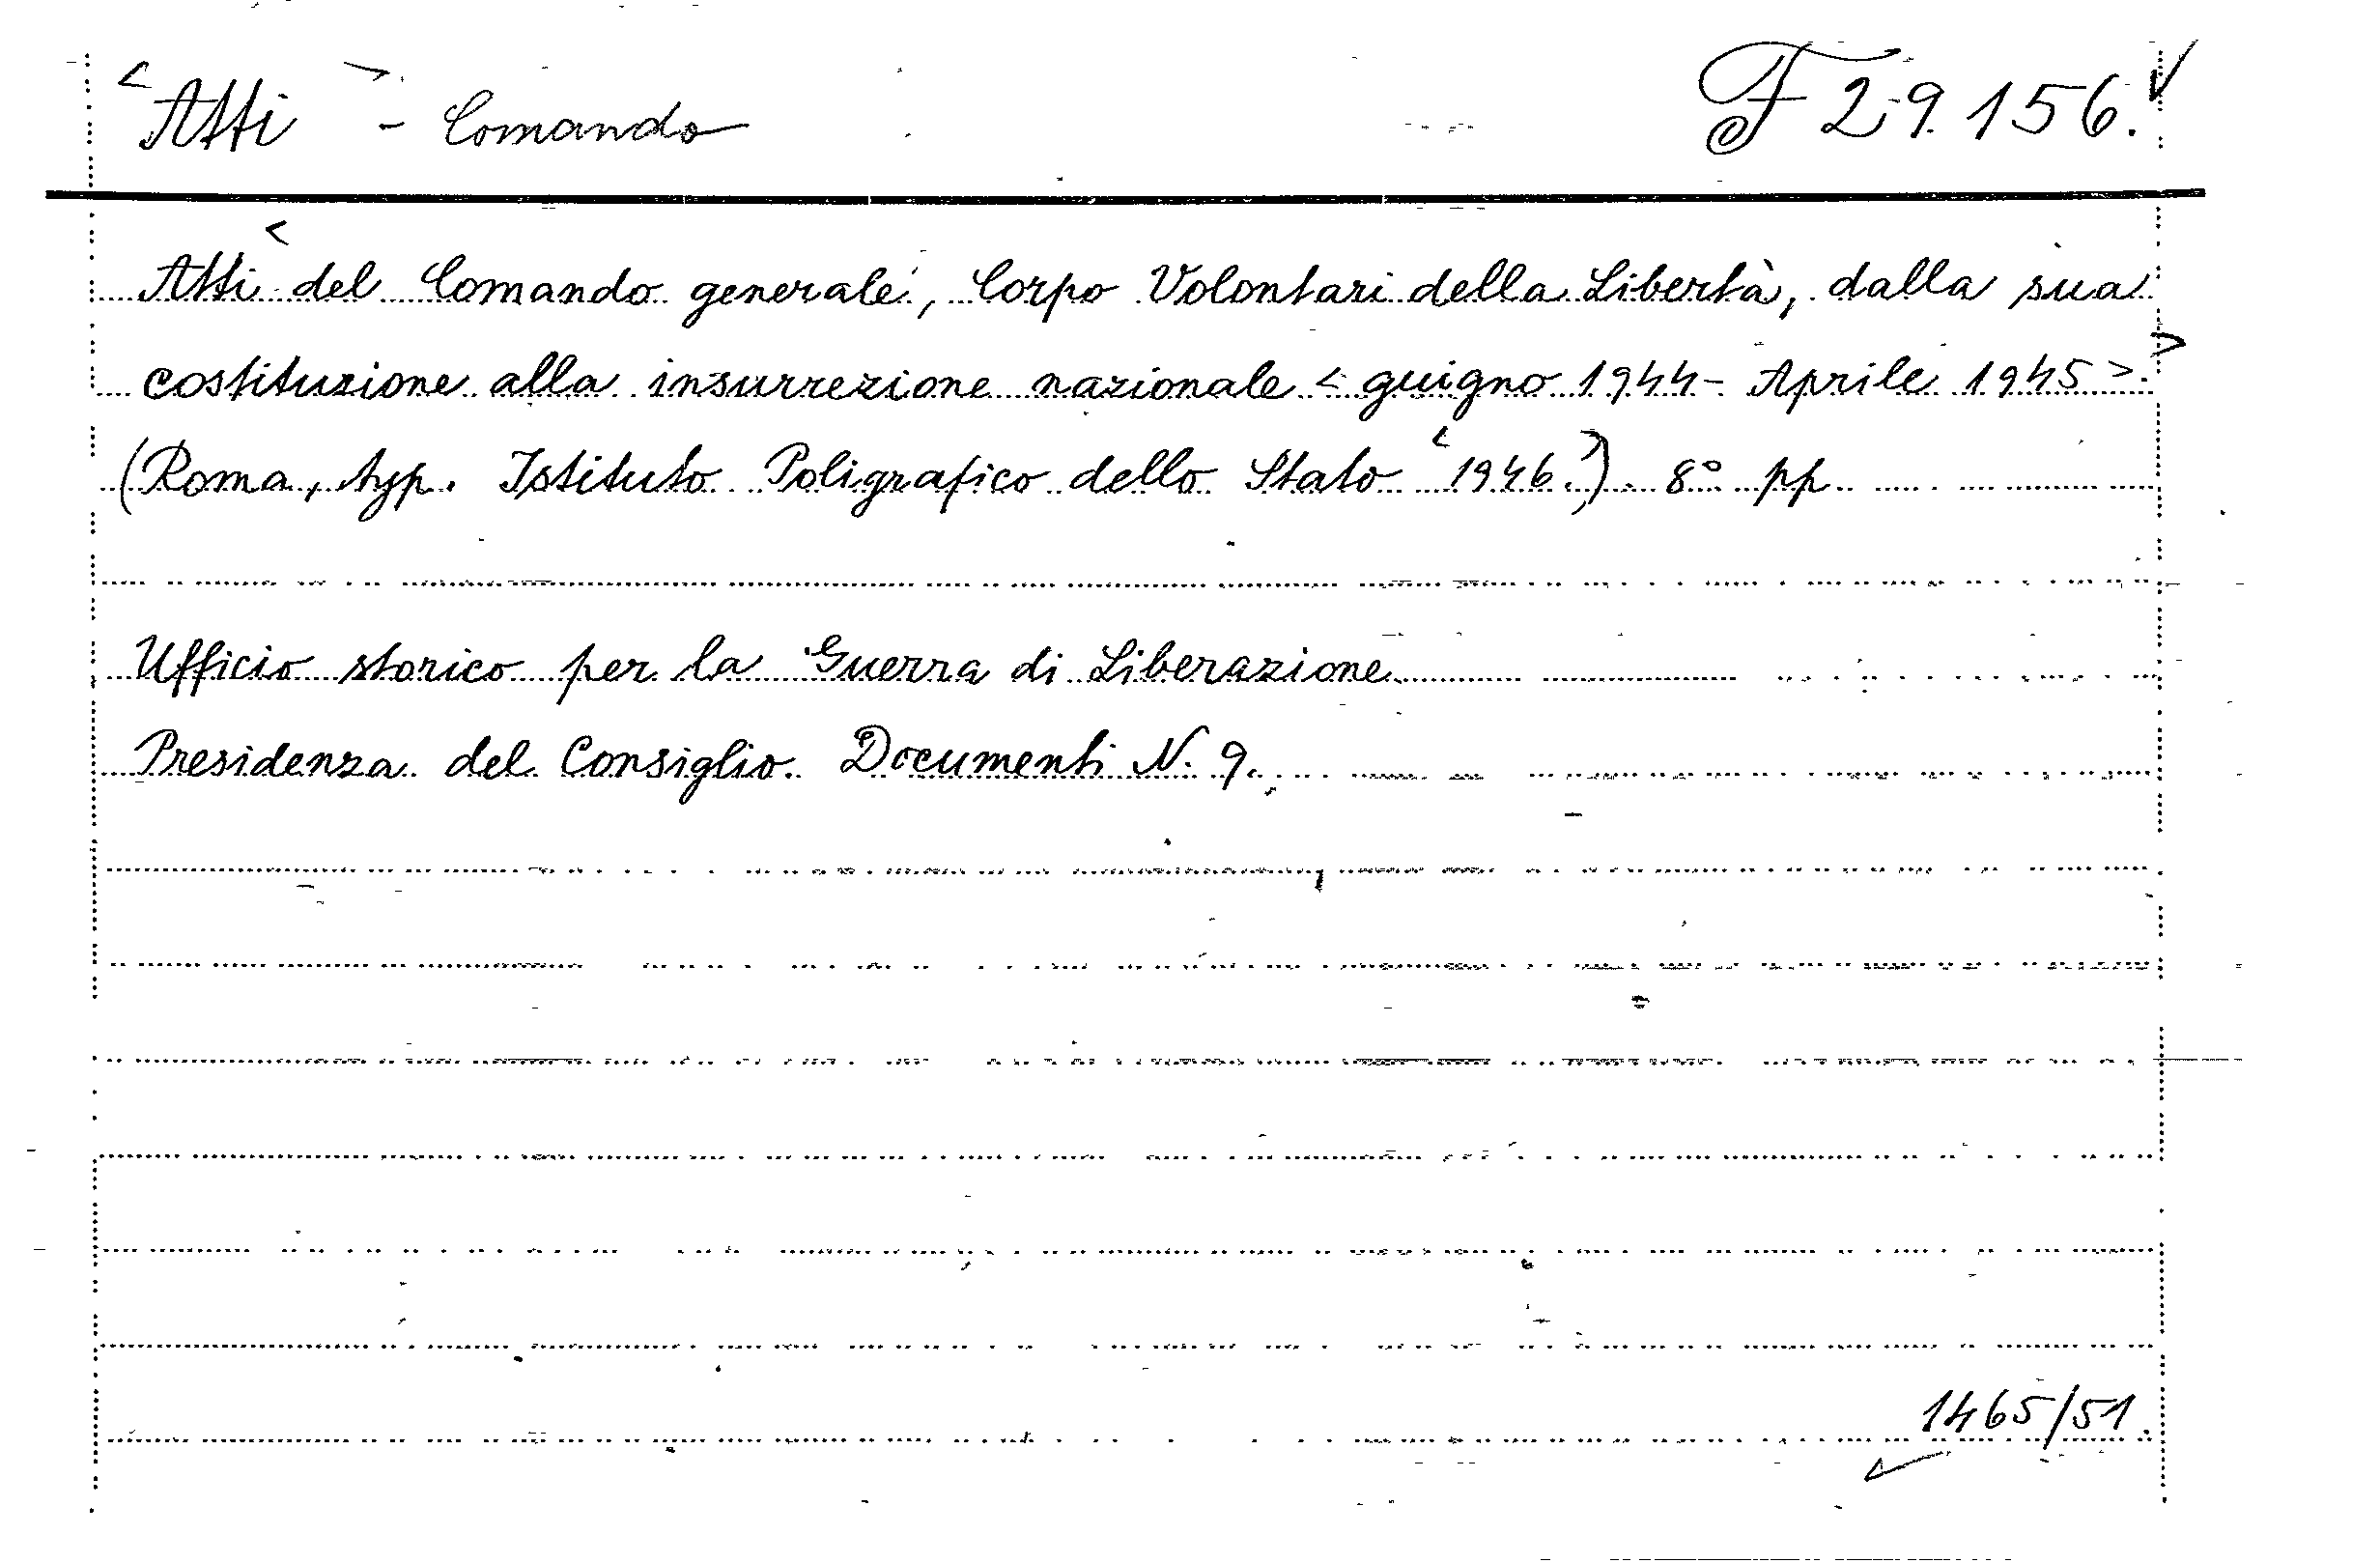 <Atti> - Comando F 29.156.
Atti < del Comando generale, Corpo Volontari della Libertà, dalla sua
costituzione alla insurrezione nazionale < guigno 1944 - Aprile 1945 >. >
(Roma, typ. Istituto Poligrafico dello Stato < 1946. >) 8° pp
Ufficio storico per la Guerra di Liberazione
Presidenza del Consiglio. Documenti N. 9.
1465/51.